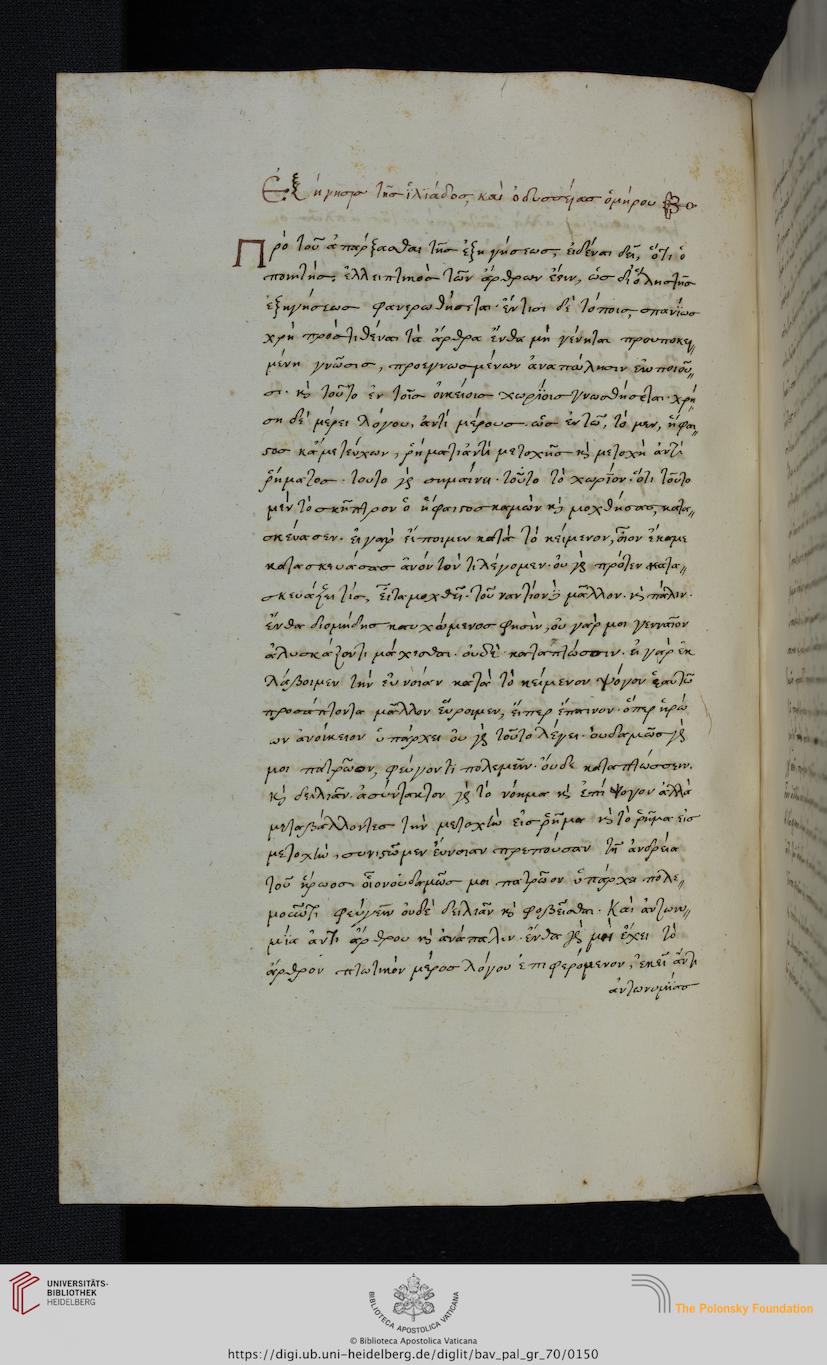 Ἐξήγησις τῆς ἰλιάδος, καὶ ὀδυσσείας ὁμήρου
Πρὸ τοῦ ἀπάρξασθαι τῆς ἐξηγήσεως, εἰδέναι δεῖ, ὅτι ὁ
ποιητὴς, ἐλλειπτικὸς τῶν ἄρθρων ἐστιν, ὡς δι' ὅλης τῆς
ἐξηγήσεως φανερωθήσεται· ἔν τισι δὲ τόποις, σπανίως
χρὴ προστιθέναι τὰ ἄρθρα ἔνθα μὴ γένηται προυποκει
μένη γνῶσις, προεγνωσμένων ἀναπώλησιν ἐμποιοῦ
σι· κὶ τοῦτο ἐν τοῖς οἰκείοις χωρίοις γνωσθήσεται· χρὴ
ση δὲ μέρει λόγου, ἀντὶ μέρους· ὡς ἐν τῶ, τὸ μεν, ἥφαι
στος κάμε τεύχων, ῥήματι ἀντὶ μετοχῆς κὶ μετοχὴ ἀντὶ
ῥήματος· τουτο γὰρ σημαίνει τοῦτο τὸ χωρίον· ὅτι τοῦτο
μὲν τὸ σκῆπτρον ὁ ἥφαιστος καμὼν κὶ μοχθήσας, κατα
σκεύασεν· εἰ γὰρ εἴποιμεν κατὰ τὸ κείμενον, οἷον ἔκαμε
κατασκευάσας ἀνόητόν τι λέγομεν· οὐ γὰρ πρότερον κατα
σκευάζει τίς, εἶτα μοχθεῖ· τοὐναντίον δὲ μᾶλλον· κὶ πάλιν·
ἔνθα διομήδης καυχώμενος φησὶν, οὐ γάρ μοι γενναῖον
ἀλυσκάζοντι μάχεσθαι· οὐδὲ καταπτώσσειν· εἰ γὰρ ἐκ
λάβοιμεν τὴν εὐνοίαν κατὰ τὸ κείμενον ψόγον ἑαυτῶ
προσάπτοντα μᾶλλον εὕροιμεν, εἴπερ ἔπαινον· ὅπερ ἡρώ
ων ἀνοίκειον ὑπάρχει οὐ γὰρ τοῦτο λέγει· οὐδαμῶς γὰρ
μοι πατρῶον, φεύγοντι πολεμεῖν· οὐδὲ καταπτώσσειν,
κὶ δειλιᾶν· ἀσύντακτον γὰρ τὸ νόημα κὶ ἐπὶ ψογον ἀλλὰ
μεταβάλλοντες τὴν μετοχὴν εἰς ῥῆμα κὶ τὸ ῥῆμα εἰς
μετοχὴν, συνιστῶμεν εὔνοιαν πρέπουσαν τῆ ἀνδρεία
τοῦ ἥρωος· οἷον οὐδαμῶς μοι πατρῶον ὑπάρχει πολε
μοῦντι φεύγειν οὐδὲ δειλιᾶν κὶ φοβεῖσθαι· Καὶ ἀντωνυ
μία ἀντὶ ἄρθρου κὶ ἀνάπαλιν· ἔνθα γὰρ μὴ ἔχει τὸ
ἄρθρον πτωτικὸν μέρος λόγου ἐπιφερομενον, ἐκεῖ ἀντὶ
ἀντωνυμίας
UNIVERSITÄTS-
BIBLIOTHEK
HEIDELBERG
BIBLIOTECA APOSTOLICA VATICANA
The Polonsky Foundation
© Biblioteca Apostolica Vaticana
https://digi.ub.uni-heidelberg.de/diglit/bav_pal_gr_70/0150